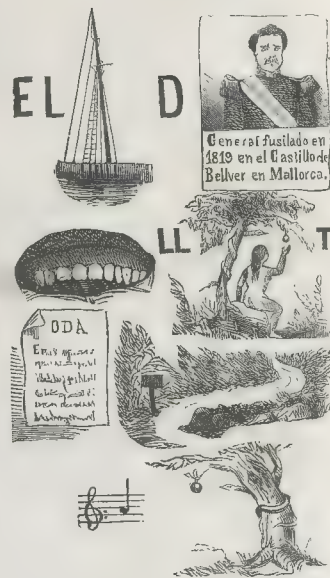 EL D
General fusilado en
1819 en el Castillo de
Bellver en Mallorca.
LL T
ODA